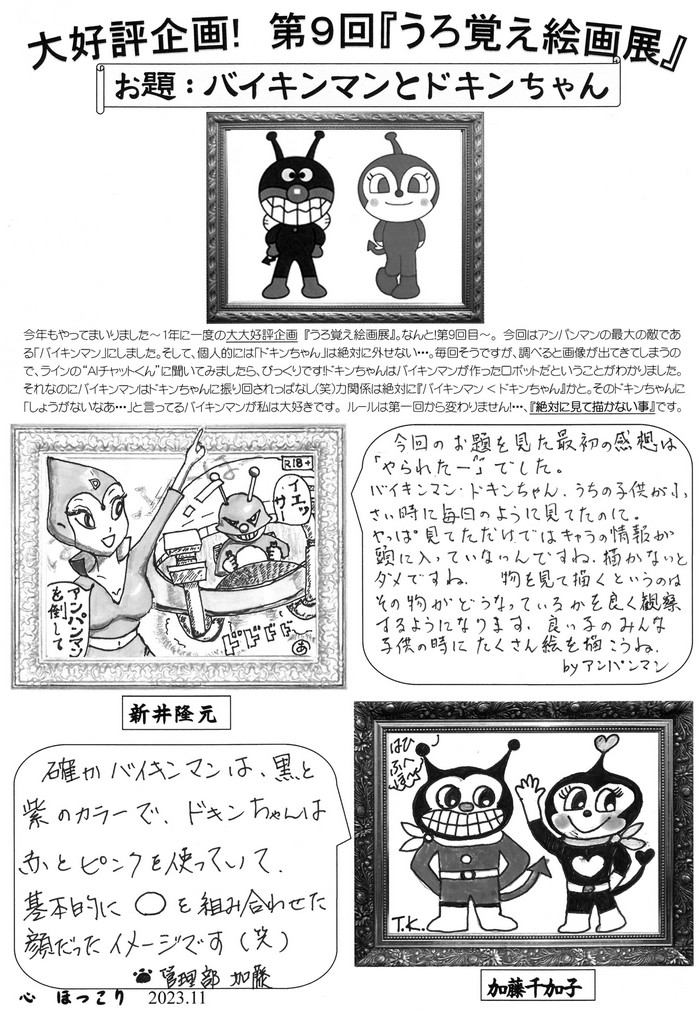 大好評企画! 第9回『うろ覚え絵画展』
お題:バイキンマンとドキンちゃん
今年もやってまいりました~1年に一度の大大好評企画『うろ覚え絵画展』。なんと!第9回目~。今回はアンパンマンの最大の敵であ
る「バイキンマン」にしました。そして、個人的には「ドキンちゃん」は絶対に外せない…。毎回そうですが、調べると画像が出てきてしまうの
で、ラインの“AIチャットくん”に聞いてみましたら、びっくりです!ドキンちゃんはバイキンマンが作ったロボットだということがわかりました。
それなのにバイキンマンはドキンちゃんに振り回されっぱなし(笑)力関係は絶対に『バイキンマン<ドキンちゃん』かと。そのドキンちゃんに
「しょうがないなあ…」と言ってるバイキンマンが私は大好きです。ルールは第一回から変わりません!…、『絶対に見て描かない事』です。
R18+
イエッサー
アンパンマン
を倒して
ドドドド
あ
新井隆元
今回のお題を見た最初の感想は
「やられたー」でした。
バイキンマン・ドキンちゃん、うちの子供が小
さい時に毎日のように見てたのに。
やっぱ見てただけではキャラの情報が
頭に入っていないんですね、描かないと
ダメですね。 物を見て描くというのは
その物がどうなっているかを良く観察
するようになります。良い子のみんな
子供の時にたくさん絵を描こうね。
by アンパンマン
確かバイキンマンは、黒と
紫のカラーで、ドキンちゃんは
赤とピンクを使っていて、
基本的に○を組み合わせた
顔だったイメージです(笑)
管理部 加藤
はひ
ふへ
ほ〜
T.K.
加藤千加子
心 ほっこり 2023.11